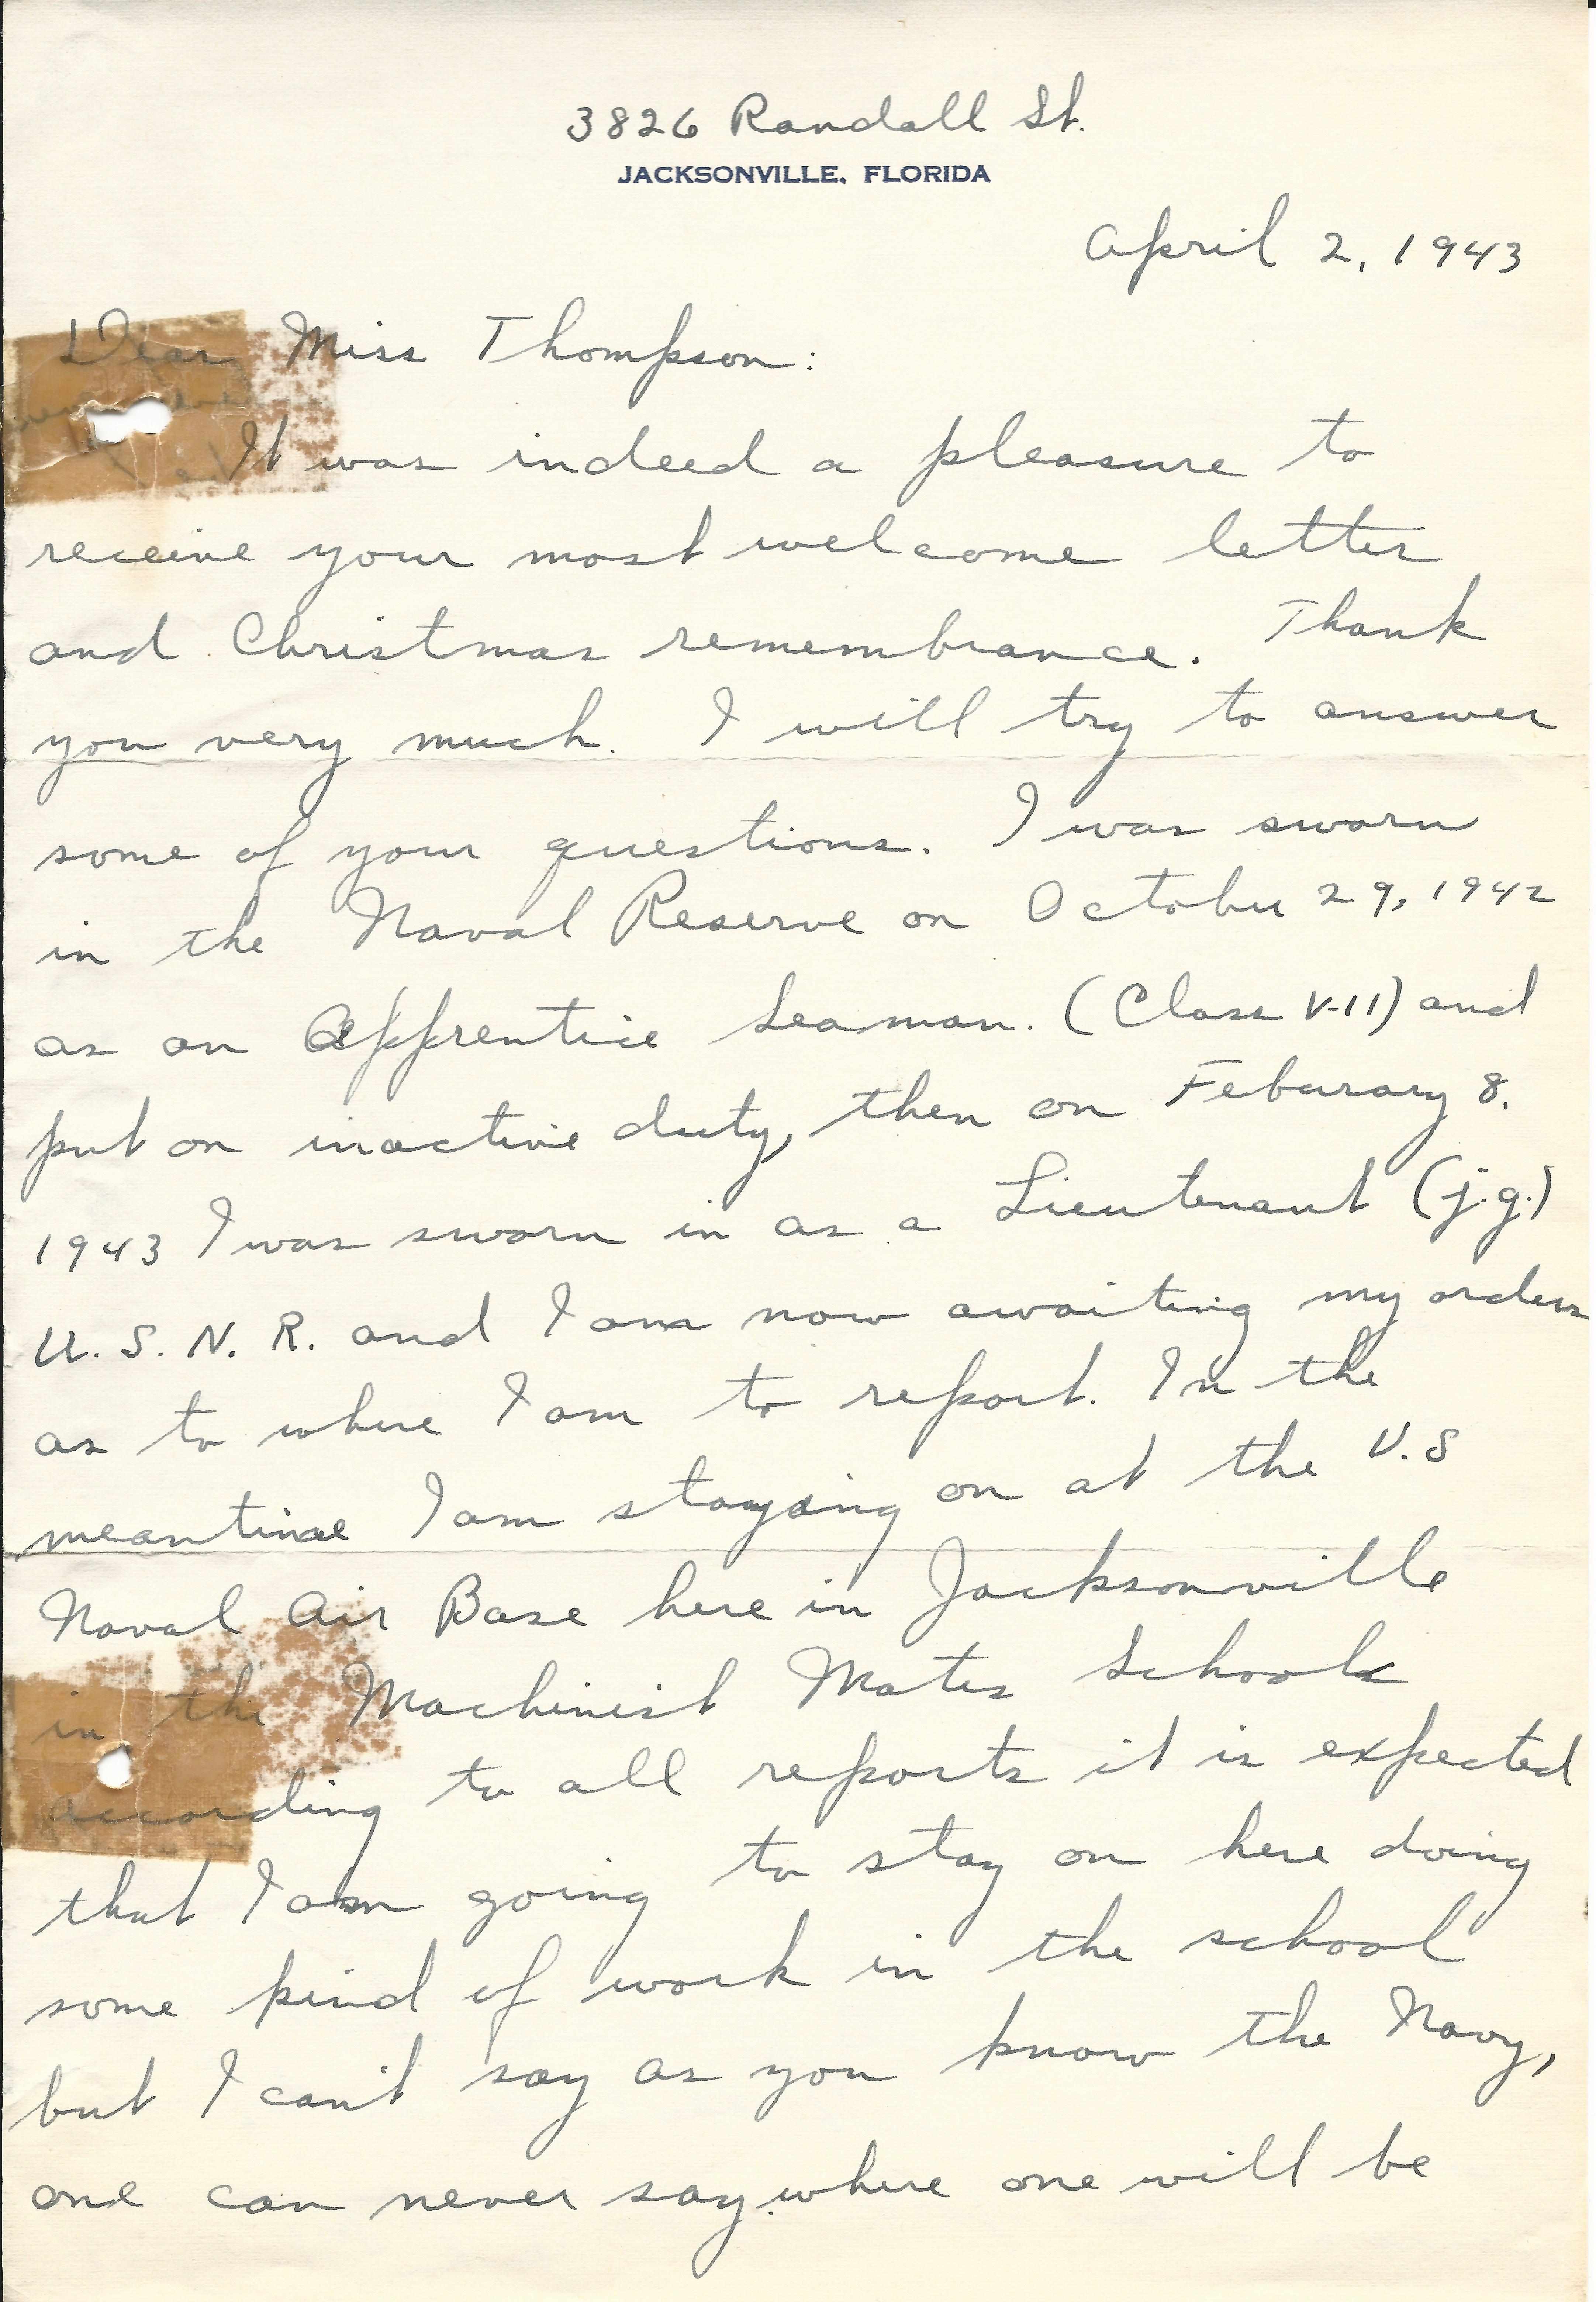 3826 Randall St.
JACKSONVILLE, FLORIDA
April 2, 1943
Dear Miss Thompson:
It was indeed a pleasure to
receive your most welcome letter
and Christmas remembrance. Thank
you very much. I will try to answer
some of your questions. I was sworn
in the Naval Reserve on October 29, 1942
as an Apprentice Seaman. (Class V-11) and
put on inactive duty, then on Feburary 8.
1943 I was sworn in as a Lieutenant (j.g.)
U. S. N. R. and I am now awaiting my orders
as to where I am to report. In the
meantime I am staying on at the U.S
Naval Air Base here in Jacksonville
in the Machinist Mates School
according to all reports it is expected
that I am going to stay on here doing
some kind of work in the school
but I can't say as you know the Navy,
one can never say where one will be